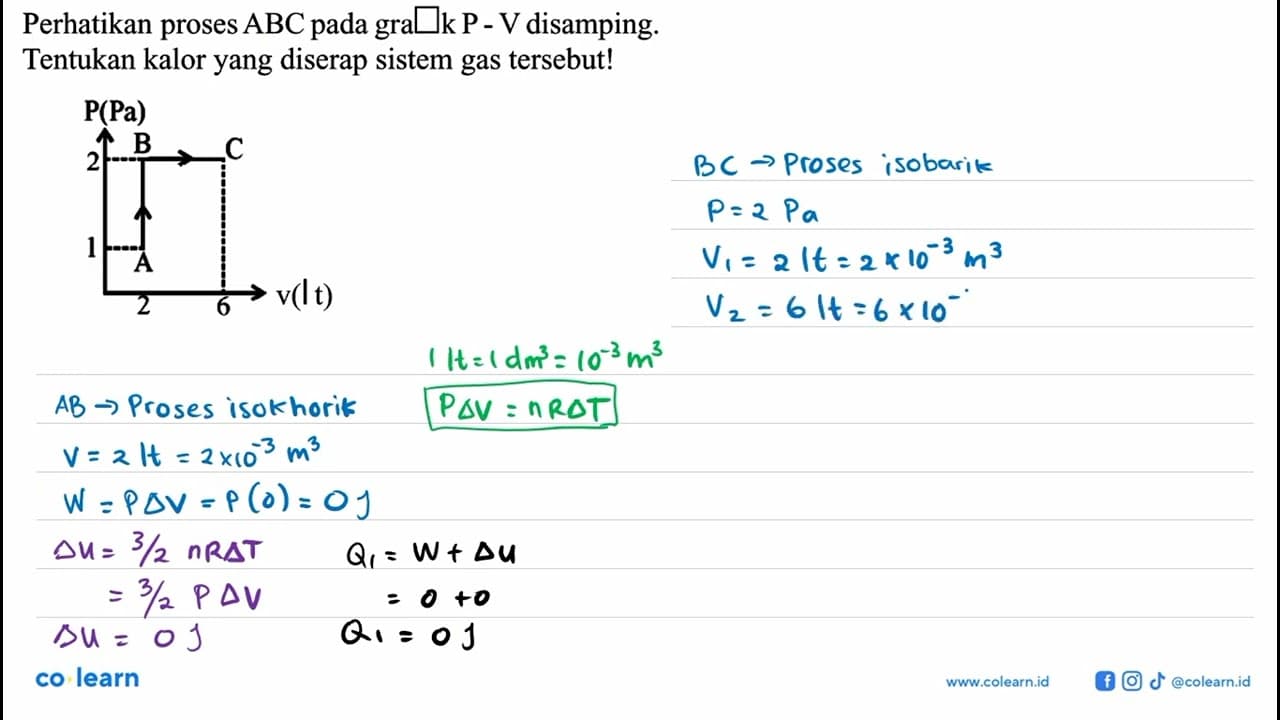 Perhatikan proses ABC pada gra□k P - V disamping.
Tentukan kalor yang diserap sistem gas tersebut!
P(Pa)
B
C
2
1
A
2
6
v(l t)
BC → Proses isobarik
P = 2 Pa
V₁ = 2 lt = 2 × 10⁻³ m³
V₂ = 6 lt = 6 × 10⁻
1 lt = 1 dm³ = 10⁻³ m³
P∆V = nR∆T
AB → Proses isokhorik
V = 2 lt = 2×10⁻³ m³
W = P∆V = P(0) = 0 J
∆U = 3/2 nR∆T
= 3/2 P∆V
∆U = 0 J
Q₁ = W + ∆U
= 0 + 0
Q₁ = 0 J
co·learn
www.colearn.id
@colearn.id